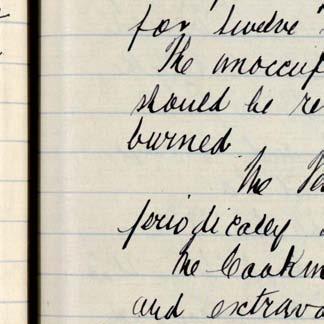 for twelve
The unoccup
should be re
burned.
The Va
periodically
The Cookm
and extrava